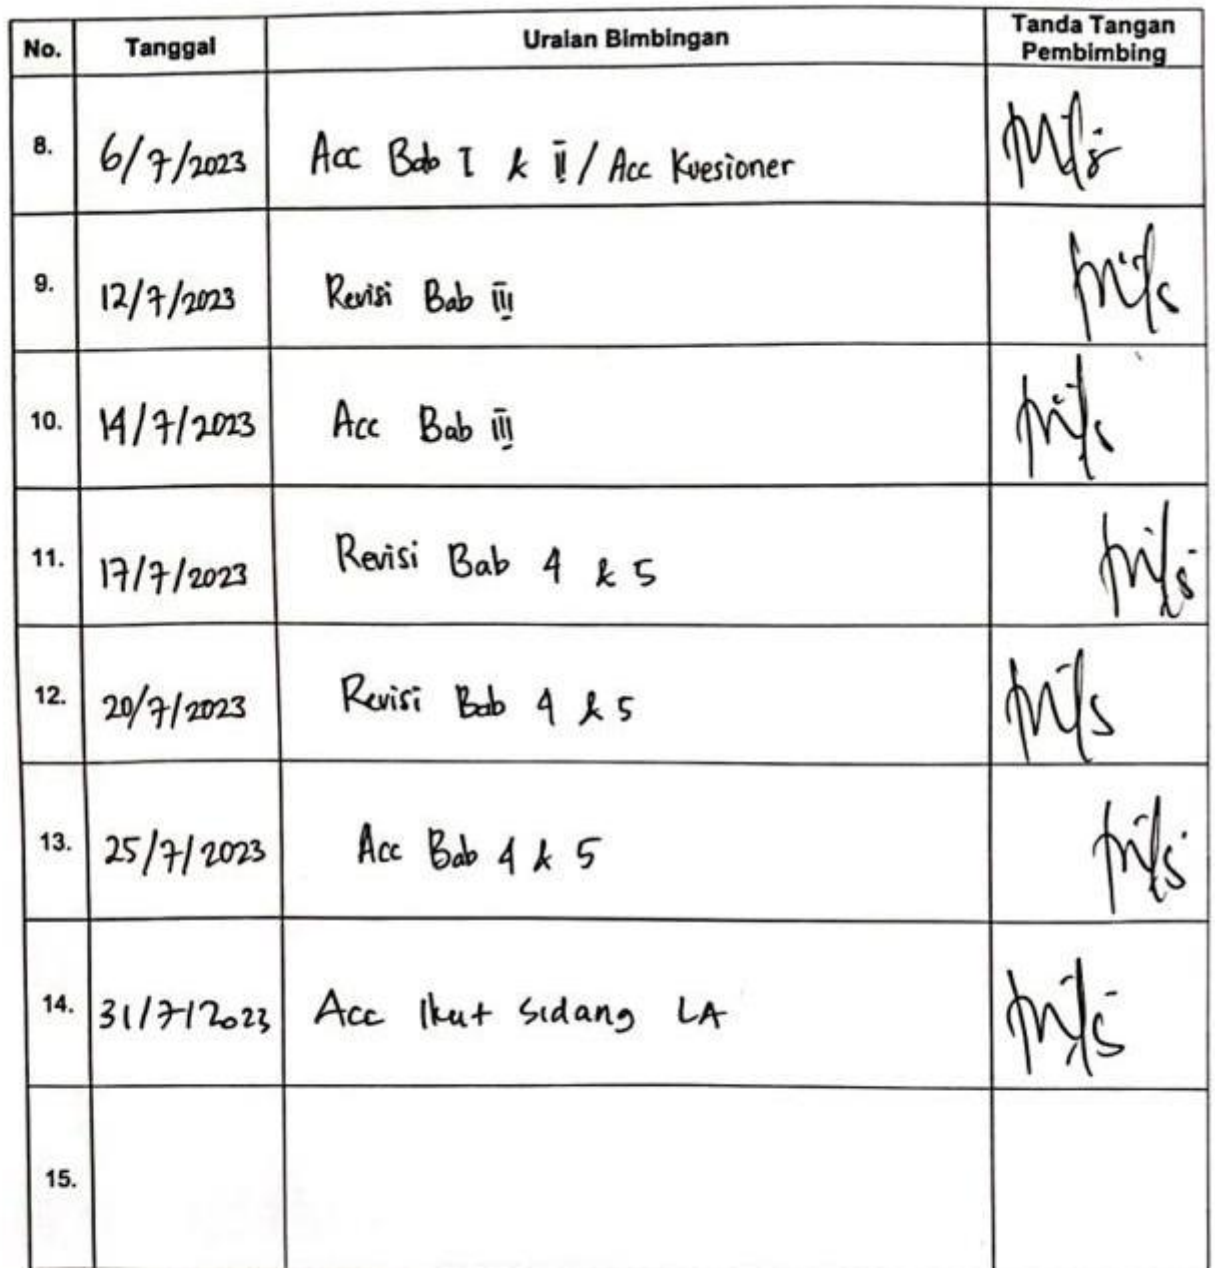 No. Tanggal Uraian Bimbingan Tanda Tangan Pembimbing
8. 6/7/2023 Acc Bab I & II / Acc Kuesioner
9. 12/7/2023 Revisi Bab III
10. 14/7/2023 Acc Bab III
11. 17/7/2023 Revisi Bab 4 & 5
12. 20/7/2023 Revisi Bab 4 & 5
13. 25/7/2023 Acc Bab 4 & 5
14. 31/7/2023 Acc Ikut Sidang LA
15.